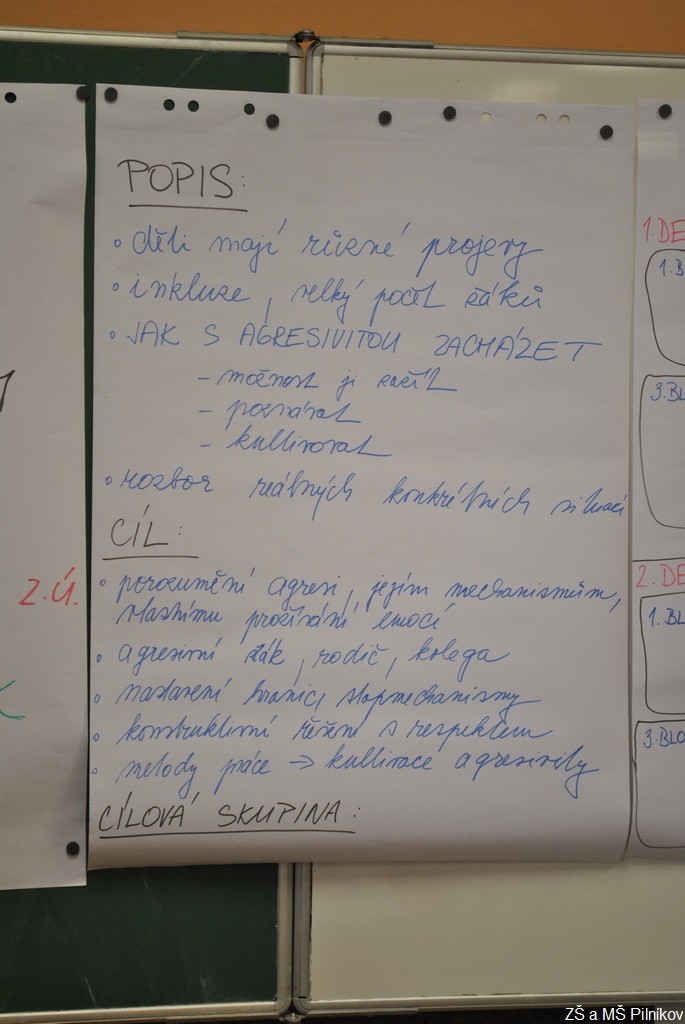 POPIS:
◦ děti mají různé projevy
◦ inkluze, velký počet žáků
◦ JAK S AGRESIVITOU ZACHÁZET
– možnost ji zažít
– poznávat
– kultivovat
◦ rozbor reálných konkrétních situací
CÍL:
◦ porozumění agresi, jejím mechanismům,
vlastnímu prožívání emocí
◦ agresivní žák, rodič, kolega
◦ nastavení hranic, stopmechanismy
◦ konstruktivní řešení s respektem
◦ metody práce → kultivace agresivity
CÍLOVÁ SKUPINA:
2.Ú.
1.DE
1.B
3.BL
2.DE
1.BL
3.BLO
ZŠ a MŠ Pilníkov